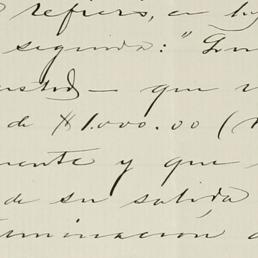 refiero, en
seguida: "En
usted — que
de $1.000.00 (
mente y que
de su salida
terminación